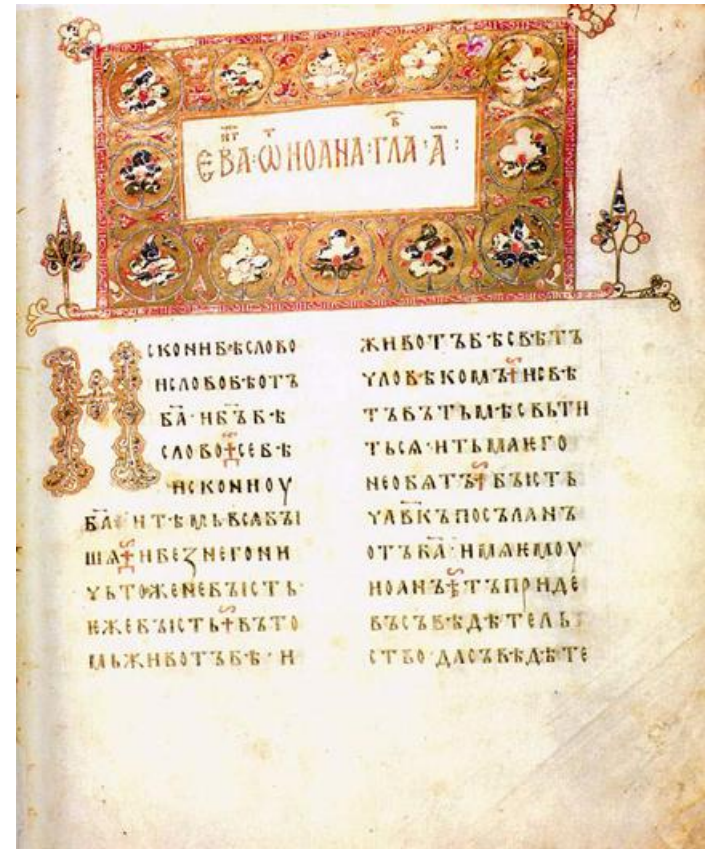 ЄВАⷩ҇Г·Ѿ ИОАНА·ГЛАⷡ҇·А҃:
ИСКОНИБѢСЛОВО
ИСЛОВОБѢОТЪ
Б҃А·ИБ҃ЪБѢ
СЛОВО☦СЕБѢ
ИСКОНИОУ
Б҃А·ИТѢМЬВСѦБꙐ
ШѦ☦ИБЕꙀНЕГОНИ
ЧЬТОЖЕНЕБꙐСТЬ·
ЕЖЕБꙐСТЬ☦ВЪТО
МЬЖИВОТЪБѢ·И
ЖИВОТЪБѢСВѢТЪ
ЧЛОВѢКОМЪ☦ИСВѢ
ТЪВЪТЬМѢСВЬТИ
ТЬСѦ·ИТЬМАѤГО
НЕОБѦТЪ☦БꙐСТЬ
ЧЛ҃ВКЪПОСЪЛАНЪ
ОТЪБ҃А·ИМѦѤМОУ
ИОАНЪ☦ТЪПРИДЕ
ВЪСЪВѢДѢТЕЛЬ
СТВО·ДАСЪВѢДѢТЕ